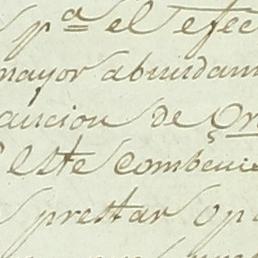 pª el efec
mayor abundam
aucion de
este combeni
prestar op